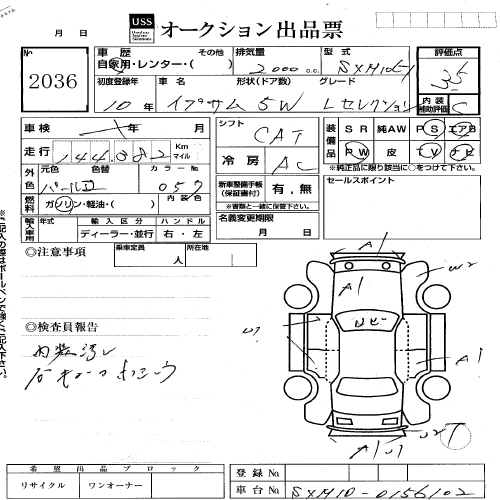 USS
オークション 出品票
月 日
No
2036
車歴 その他
自家用・レンター・( )
排気量
2000 c.c.
型式
SXM10
評価点
3.5
初度登録年
10年
車名 形状(ドア数) グレード
イプサム 5W Lセレクション
内装
補助評価
C
車検 年 月
走行 144,082 Km
マイル
シフト
CAT
冷房
AC
装備品
SR 純AW PS エアB
PW 皮 TV ナビ
※純正品に限り該当に○をつけて下さい。
外色
元色 色替 カラーNo
パールII 057
燃料
ガソリン・軽油・( )
内装色
新車整備手帳
(保証書付)
有・無
※書類と一緒に保管下さい。
セールスポイント
輸入車用
年式 輸入区分 ハンドル
ディーラー・並行 右・左
名義変更期限
月 日
◎注意事項
乗車定員 人
所在地
A1
W2
A1
ルビー
W1
A1
◎検査員報告
内装汚レ
A1 U1
U2
※(ご記入の際はボールペンで強くご記入下さい。)
希望出品ブロック
リサイクル ワンオーナー
登録No
車台No SXM10-0156102